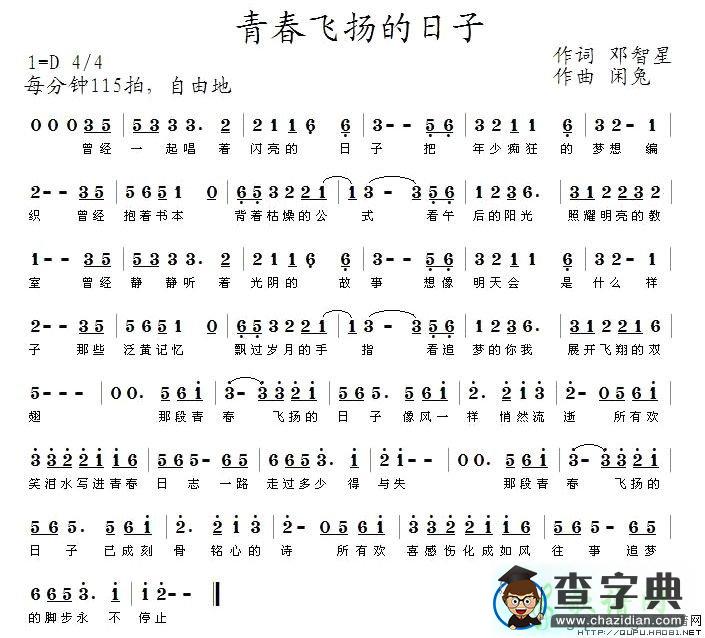 青春飞扬的日子
1=D 4/4
作词 邓智星
每分钟115拍，自由地
作曲 闲兔
0 0 0 3 5 | 5 3 3 3. 2 | 2 1 1 6 6 | 3 - - 5 6 | 3 2 1 1 6 | 3 2 - 1 |
曾经 一起唱 着 闪亮的 日 子 把 年少痴狂 的 梦想 编
2 - - 3 5 | 5 6 5 1 0 | 6 5 3 2 2 1 | 1 3 - 3 5 6 | 1 2 3 6. | 3 1 2 2 1 6 |
织 曾经 抱着书本 背着枯燥的公 式 看午 后的阳光 照耀明亮的教
1 - - 3 5 | 5 3 3 3. 2 | 2 1 1 6 6 | 3 - - 5 6 | 3 2 1 1 6 | 3 2 - 1 |
室 曾经 静静听 着 光阴的 故 事 想像 明天会 是 什么 样
2 - - 3 5 | 5 6 5 1 0 | 6 5 3 2 2 1 | 1 3 - 3 5 6 | 1 2 3 6. | 3 1 2 2 1 6 |
子 那些 泛黄记忆 飘过岁月的手 指 看追 梦的你我 展开飞翔的双
5 - - - | 0 0. 5 6 1 | 3 - 3 3 2 1 | 5 6 5. 5 6 1 | 2. 2 1 6 1 | 2 - 0 5 6 1 |
翅 那段青 春 飞扬的 日 子 像风一 样 悄然流 逝 所有欢
3 3 2 2 1 1 6 6 | 5 6 5 - 5 6 | 6 6 5 5 3. 2 | 2 5 5 - | 0 0. 5 6 1 | 3 - 3 3 2 1 |
笑泪水写进青春 日志 一路 走过多少 得 与失 那段青 春 飞扬的
5 6 5. 5 6 1 | 2. 2 1 6 1 | 2 - 0 5 6 1 | 3 3 2 2 1 1 6 | 5 6 5. 5 6 |
日 子 已成刻 骨 铭心的 诗 所有欢 喜感伤化成如风 往 事 追梦
6 6 5 3. 1 | 1 2 - - ‖
的脚步永 不 停止
查字典
www.chazidian.com